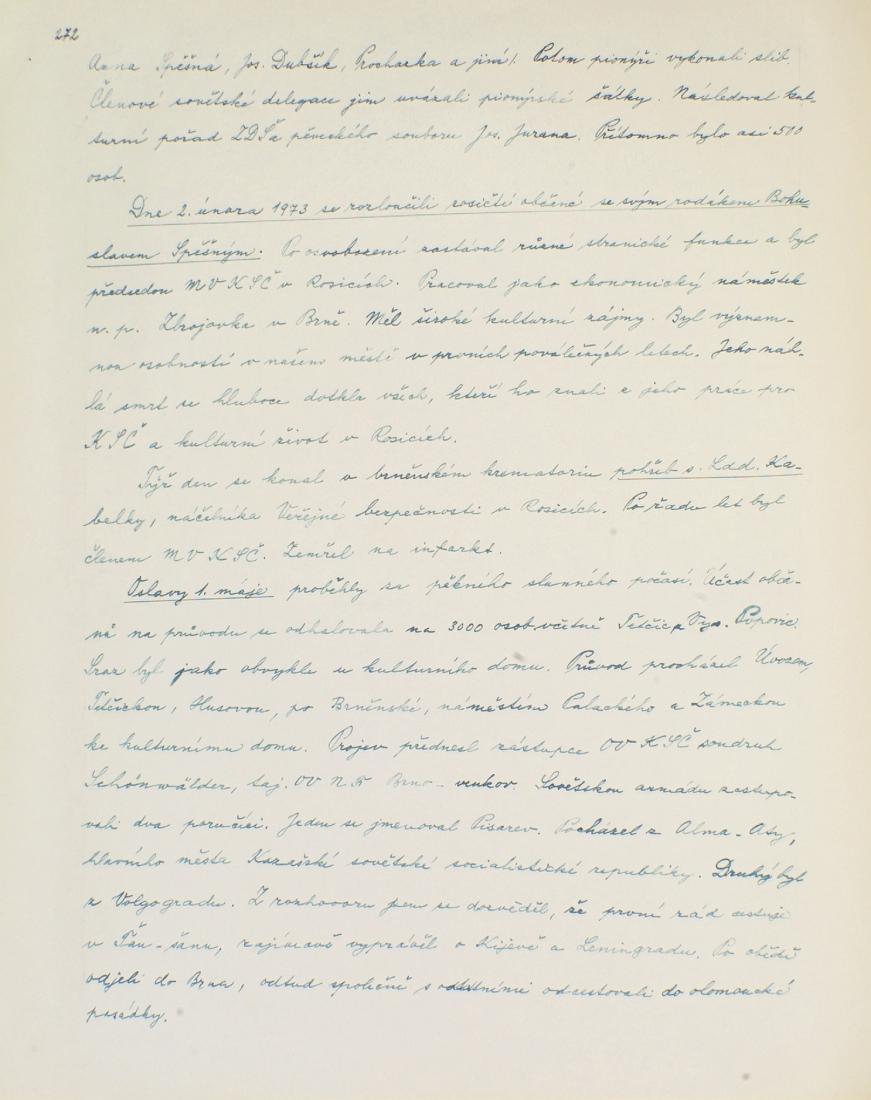 272
Anna Spěšná, Jos. Dubšík, Procházka a jiní/. Potom pionýři vykonali slib.
Členové sovětské delegace jim uvázali pionýrské šátky. Následoval kul-
turní pořad ZDŠ a pěveckého souboru Jos. Jurana. Přítomno bylo asi 500
osob.
Dne 2. února 1973 se rozloučili rosičtí občané se svým rodákem Bohu-
slavem Spěšným. Po osvobození zastával různé stranické funkce a byl
předsedou MV KSČ v Rosicích. Pracoval jako ekonomický náměstek
n. p. Zbrojovka v Brně. Měl široké kulturní zájmy. Byl význam-
nou osobností v našem městě v prvních poválečných letech. Jeho náh-
lá smrt se hluboce dotkla všech, kteří ho znali z jeho práce pro
KSČ a kulturní život v Rosicích.
Týž den se konal v brněnském krematoriu pohřeb s. Ldd. Ka-
belky, náčelníka Veřejné bezpečnosti v Rosicích. Po řadu let byl
členem MV KSČ. Zemřel na infarkt.
Oslavy 1. máje proběhly za pěkného slunného počasí. Účast obča-
nů na průvodu se odhalovala na 3000 osob včetně Tetčic a Vys. Popovic.
Sraz byl jako obvykle u kulturního domu. Průvod procházel Úvozem,
Tetčickou, Husovou, po Brněnské, náměstím Palackého a Zámeckou
ke kulturnímu domu. Projev přednesl zástupce OV KSČ soudruh
Schönwälder, taj. OV NF Brno-venkov. Sovětskou armádu zastupo-
vali dva poručíci. Jeden se jmenoval Pisarev. Pocházel z Alma-Aty,
hlavního města Kazašské sovětské socialistické republiky. Druhý byl
z Volgogradu. Z rozhovoru jsem se dozvěděl, že první rád cestuje
v Ťan-šanu, zajímavě vyprávěl o Kijevě a Leningradu. Po obědě
odjeli do Brna, odtud společně s ostatními odcestovali do olomoucké
posádky.